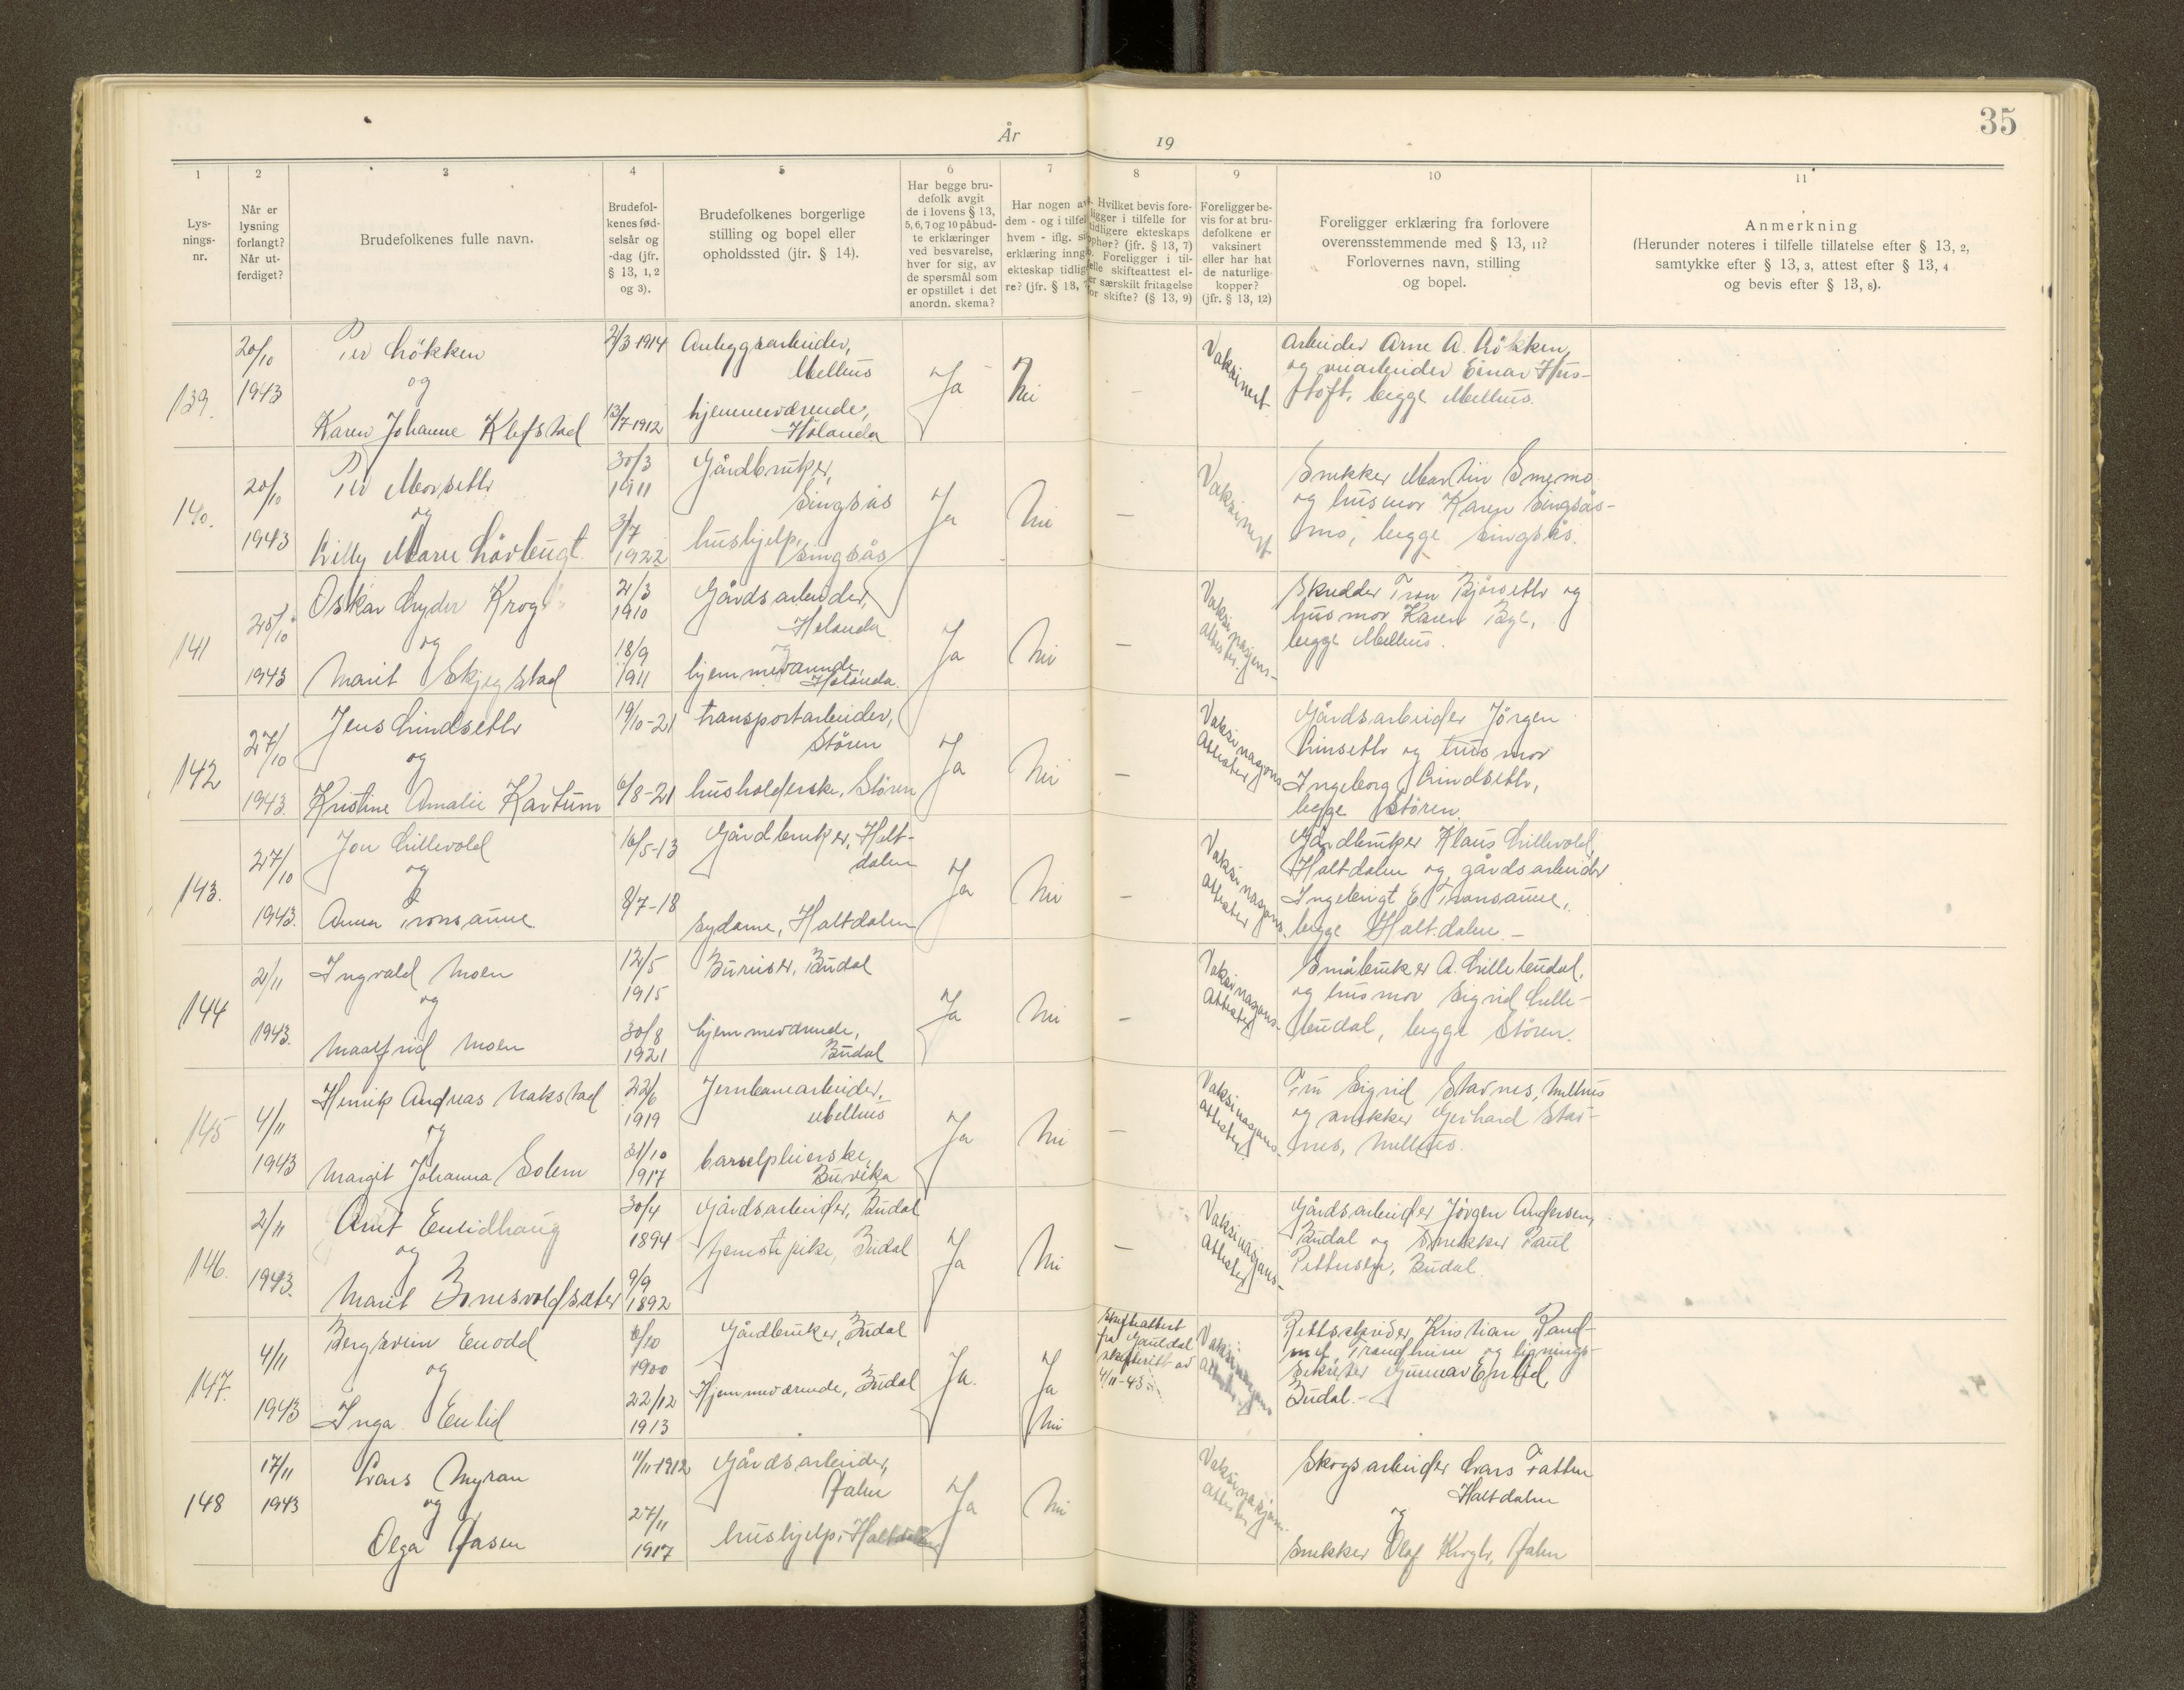 35
År
19
1
2
3
4
5
6
7
8
9
10
11
Lys-
nings-
nr.
Når er
lysning
forlangt?
Når ut-
ferdiget?
Brudefolkenes fulle navn.
Brudefol-
kenes fød-
selsår og
-dag (jfr.
§ 13, 1, 2
og 3).
Brudefolkenes borgerlige
stilling og bopel eller
opholdssted (jfr. § 14).
Har begge bru-
defolk avgit
de i lovens § 13,
5, 6, 7 og 10 påbud-
te erklæringer
ved besvarelse,
hver for sig, av
de spørsmål som
er opstillet i det
anordn. skema?
Har nogen av
dem - og i tilfel
hvem - iflg.
erklæring inng
ekteskap tidlig
re? (jfr. § 13,
Hvilket bevis fore-
ligger i tilfelle for
tidligere ekteskaps
ophør? (jfr. § 13, 7)
Foreligger i til-
felle skifteattest el-
er særskilt fritagelse
for skifte? (§ 13, 9)
Foreligger be-
vis for at bru-
defolkene er
vaksinert
eller har hat
de naturlige
kopper?
(jfr. § 13, 12)
Foreligger erklæring fra forlovere
overensstemmende med § 13, 11?
Forlovernes navn, stilling
og bopel.
Anmerkning
(Herunder noteres i tilfelle tillatelse efter § 13, 2,
samtykke efter § 13, 3, attest efter § 13, 4
og bevis efter § 13, 8).
139.
20/10
1943
Per Løkken
og
Karen Johanne Klefstad
2/3 1914
13/7 1912
Anleggsarbeider,
Melhus
hjemmeværende,
Hølanda
Ja
Nei
-
Vaksinert
Arbeider Arne A. Løkken,
og veiarbeider Einar Hus-
toft, begge Melhus.
140.
20/10
1943
Per Morseth
og
Lilly Marie Løvbugt
30/3
1911
3/7
1922
Gårdbruker,
Singsås
hushjelp,
Singsås
Ja
Nei
-
Vaksinert
Snekker Martin Smemo
og husmor Karen Singsås-
mo, begge Singsås.
141
25/10
1943
Oskar Lyder Krogh
og
Marit Skjegstad
2/3
1910
18/9
1911
Gårdsarbeider,
Hølanda
og
hjemmeværende
Hølanda.
Ja
Nei
-
Vaksinasjons-
attester.
Skredder Tron Bjørseth og
husmor Karen Bye,
begge Melhus.
142
27/10
1943.
Jens Lindseth
og
Kristine Amalie Kartum
19/10-21
6/8-21
transportarbeider,
Støren
husholderske, Støren
Ja
Nei
-
Vaksinasjons
attester
Gårdsarbeider Jörgen
Linseth og husmor
Ingeborg Lindseth,
begge Støren.
143.
27/10
1943.
Jon Lillevold
og
Anna Tronsaune.
16/5-13
8/7-18
Gårdbruker, Halt-
dalen
sydame, Haltdalen
Ja
Nei
-
Vaksinasjons-
attester
Gårdbruker Klaus Lillevold,
Haltdalen og gårdsarbeider
Ingebrigt E. Tronsaune,
begge Haltdalen. -
144
2/11
1943.
Ingvald Moen
og
Maalfrid Moen
12/5
1915
30/8
1921
Bureiser, Budal
hjemmeværende,
Budal
Ja
Nei
-
Vaksinasjons-
attester
Småbruker A. Lillebudal,
og husmor Sigrid Lille-
budal, begge Støren.
145
4/11
1943
Henrik Andreas Vakstad
og
Margit Johanna Solem
22/6
1919
31/10
1917
Jernbanearbeider,
Melhus
barselpleierske,
Buvika
Ja
Nei
-
Vaksinasjons-
attester
Fru Sigrid Stavnes, Melhus
og snekker Gerhard Stav-
nes, Melhus.
146.
2/11
1943.
Arnt Enlidhaug
og
Marit Bonesvoldsæter
30/4
1894
9/9
1892
Gårdsarbeider, Budal
tjenestepike, Budal
Ja
Nei
-
Vaksinasjons-
attester
Gårdsarbeider Jörgen Andersen,
Budal og Snekker Paul
Pettersen, Budal.
147.
4/11
1943
Bergsvein Enodd
og
Inga Enlid
6/10
1900
22/12
1913
Gårdbruker, Budal
Hjemmeværende, Budal
Ja.
Ja
Nei
Skifteattest
fra Gauldal
skifterett av
4/11-43.
Vaksinasjons
attester
Rettsskriver Kristian Rand-
mel Trondheim og lignings-
sekretær Gunnar Enlid,
Budal. -
148
17/11
1943
Lars Myran
og
Olga Aasen
11/11-1912
27/11
1917
Gårdsarbeider,
Aalen
hushjelp, Haltdalen
Ja
Nei
Vaksinasjons-
attester
Skogsarbeider Lars Fatten
Haltdalen
og
snekker Olaf Krogh, Aalen